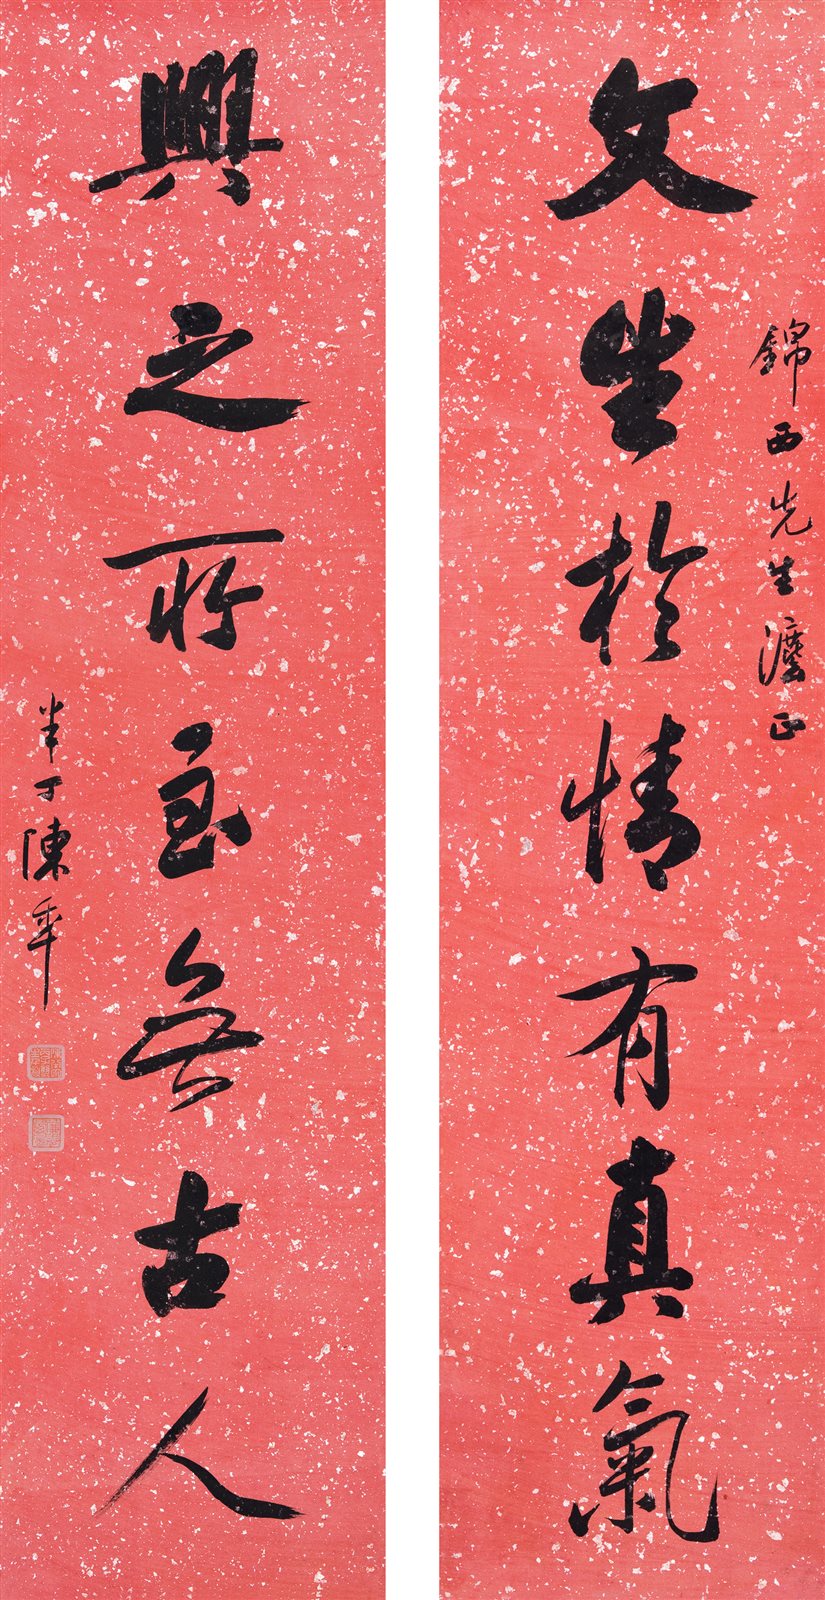 錦西先生灋正
文生於情有真氣
興之所至無古人
半丁陳年